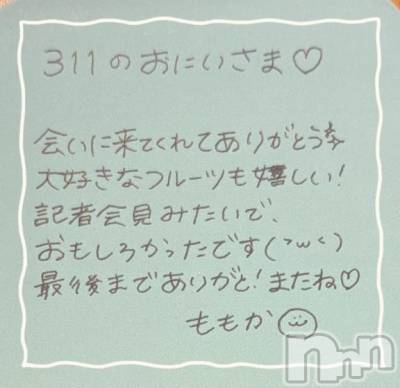 311のおにいさま♡
会いに来てくれてありがとう
大好きなフルーツも嬉しい!
記者会見みたいで、
おもしろかったです(˘ω˘)
最後までありがと!またね♡
ももか
nnn